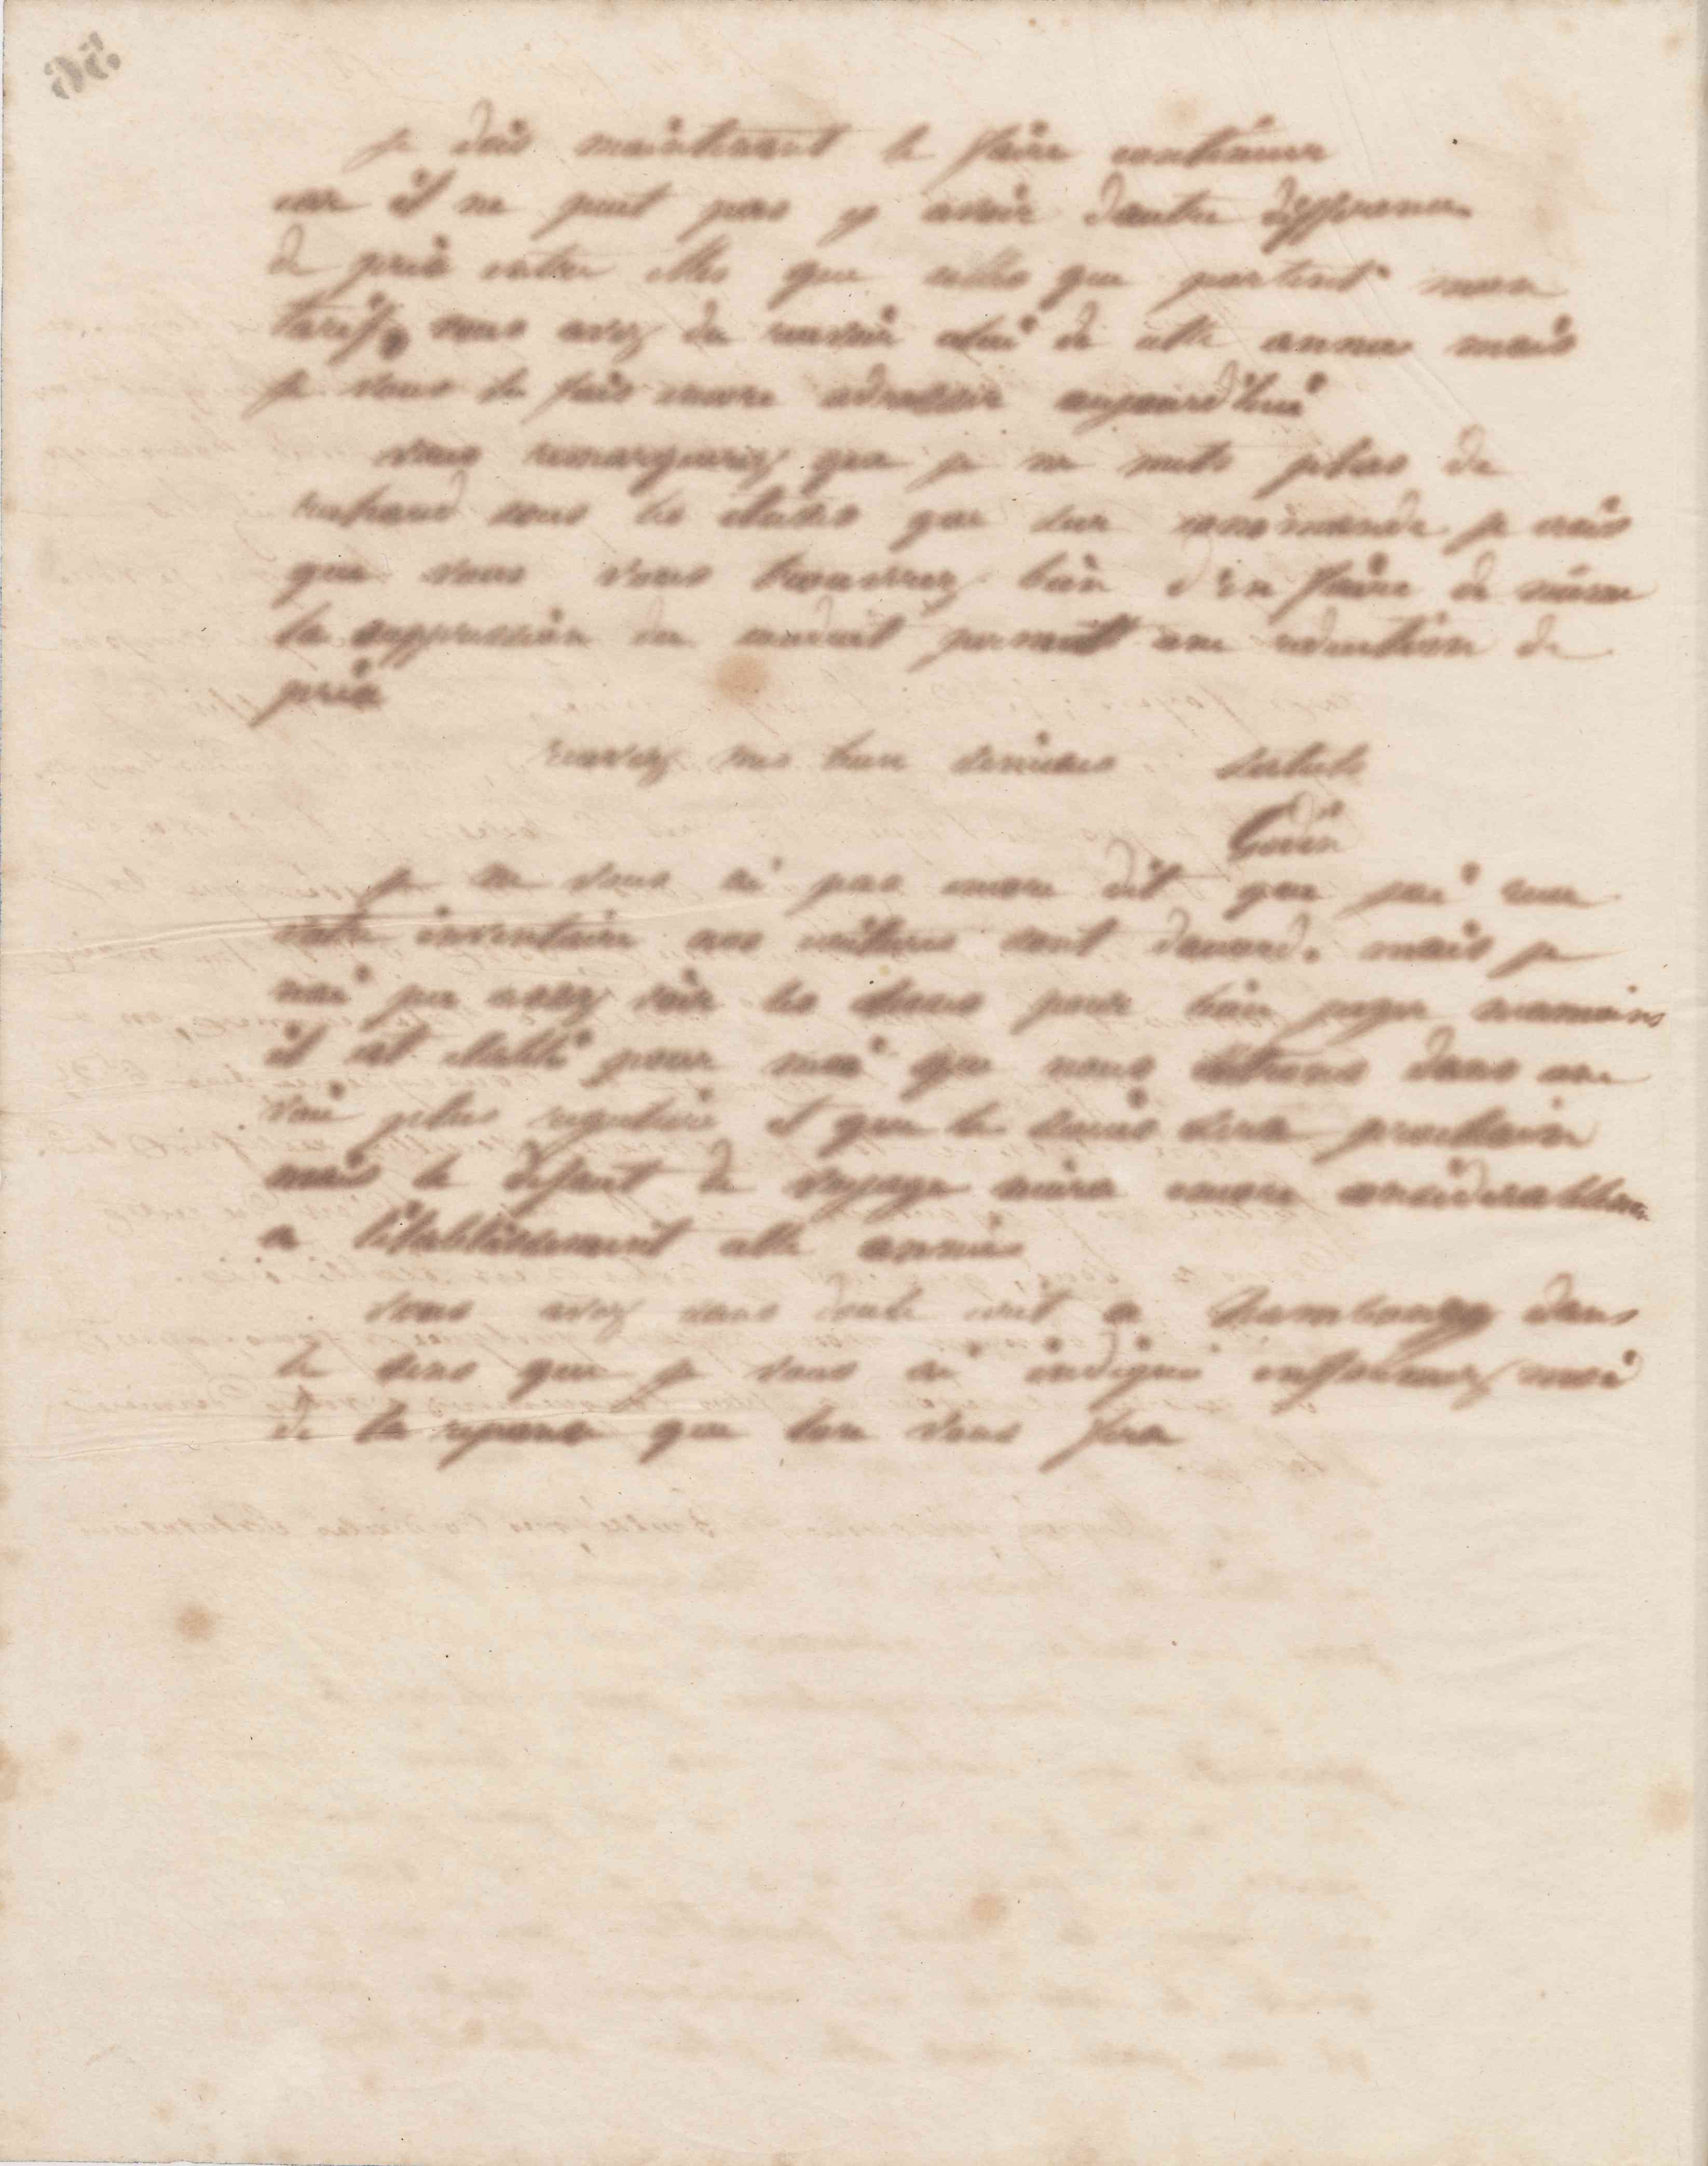 je dois maintenant le faire continuer
car il ne peut pas y avoir dautre difference
de prix entre elles que celles que portent mon
tarif, vous avez du recevoir celui de cette annee mais
je vous le fais encore adresser aujourdhui
vous remarquerez que je ne mets plus de
rechaud sous les que sur commande je crois
que vous vous trouverez bien d'en faire de même
la suppression du conduit permet une reduction de
prix
recevez mes bien sinceres saluts
Godin
je ne vous ai pas encore dit que jai recu
votre inventaire nos ecritures sont daccord. mais je
nai pu assez voir les choses pour bien juger neanmoins
il est etabli pour moi que nous entrons dans une
voie plus reguliere et que le succes sera prochain
mais le defaut de voyage nuira encore considerablement
a l'établissement cette année
vous avez sans doute ecrit a dans
le sens que je vous ai indiqué informez moi
de la reponse que lon vous fera